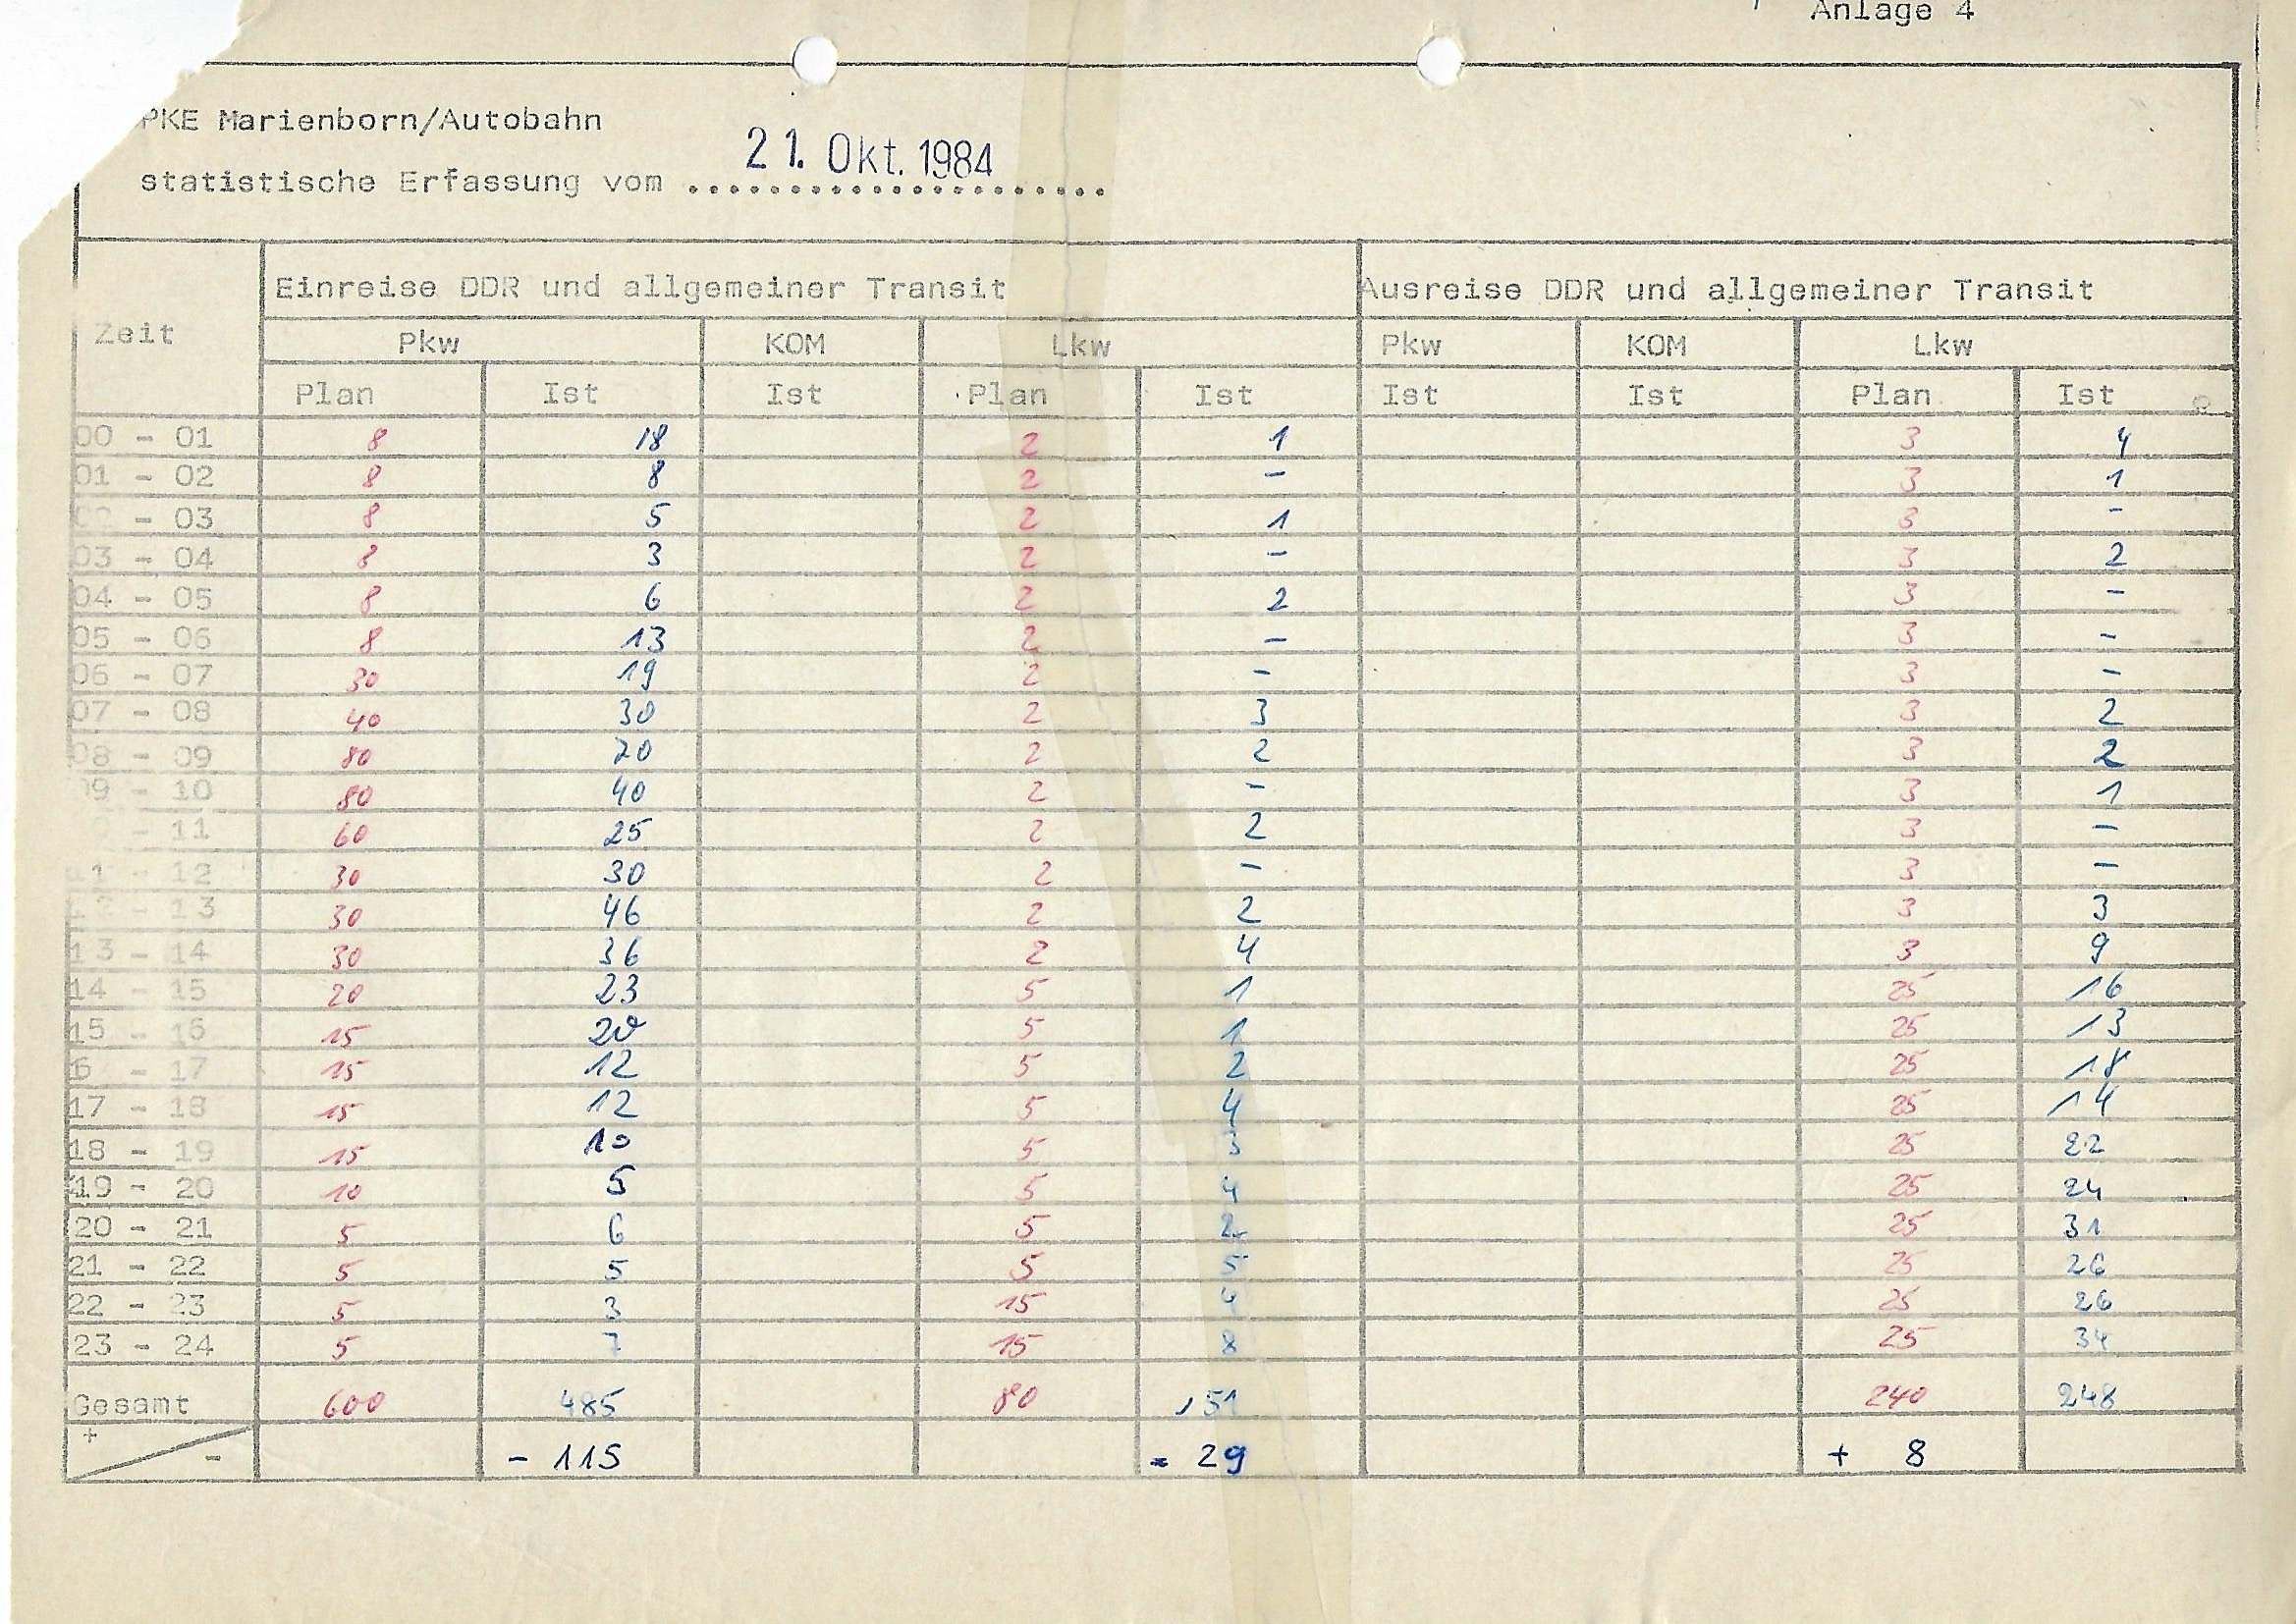 Anlage 4
PKE Marienborn/Autobahn
statistische Erfassung vom ..................... 21. Okt. 1984
Einreise DDR und allgemeiner Transit Ausreise DDR und allgemeiner Transit
Zeit
Pkw KOM Lkw Pkw KOM Lkw
Plan Ist Ist Plan Ist Ist Ist Plan Ist
00 - 01 8 18 2 1 3 4
01 - 02 8 8 2 - 3 1
02 - 03 8 5 2 1 3 -
03 - 04 8 3 2 - 3 2
04 - 05 8 6 2 2 3 -
05 - 06 8 13 2 - 3 -
06 - 07 30 19 2 - 3 -
07 - 08 40 30 2 3 3 2
08 - 09 80 2 2 3 2
09 - 10 80 40 2 - 3 1
- 11 60 25 2 2 3 -
1 - 12 30 30 2 - 3 -
12 - 13 30 46 2 2 3 3
13 - 14 30 36 2 4 3 9
14 - 15 20 23 5 1 25 16
15 - 16 15 20 5 1 25 13
6 - 17 15 12 5 2 25 18
17 - 18 15 12 5 4 25 14
18 - 19 15 10 5 3 25 22
19 - 20 10 5 5 4 25 24
20 - 21 5 6 5 2 25 31
21 - 22 5 5 5 5 25 26
22 - 23 5 3 15 4 25 26
23 - 24 5 7 15 8 25 34
Gesamt 600 485 80 51 240 248
+ - - 115 - 29 + 8